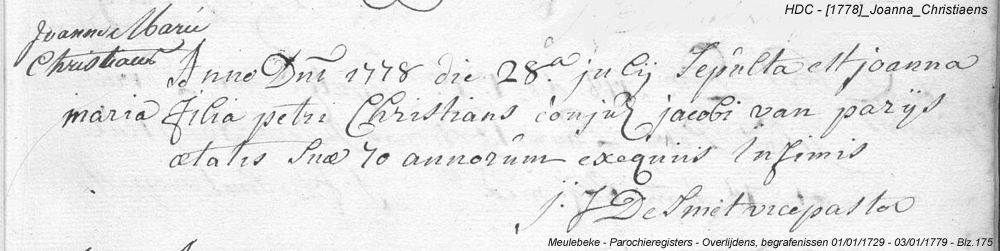 HDC - [1778]_Joanna_Christiaens
Joanna Marie
Christiaens
Anno Dni 1778 die 28.a julij sepulta est joanna
maria filia petri Christians conjux jacobi van parijs
ætatis suæ 70 annorum exequiis infimis
j. J DeSmet vicepastor
Meulebeke - Parochieregisters - Overlijdens, begrafenissen 01/01/1729 - 03/01/1779 - Blz.175